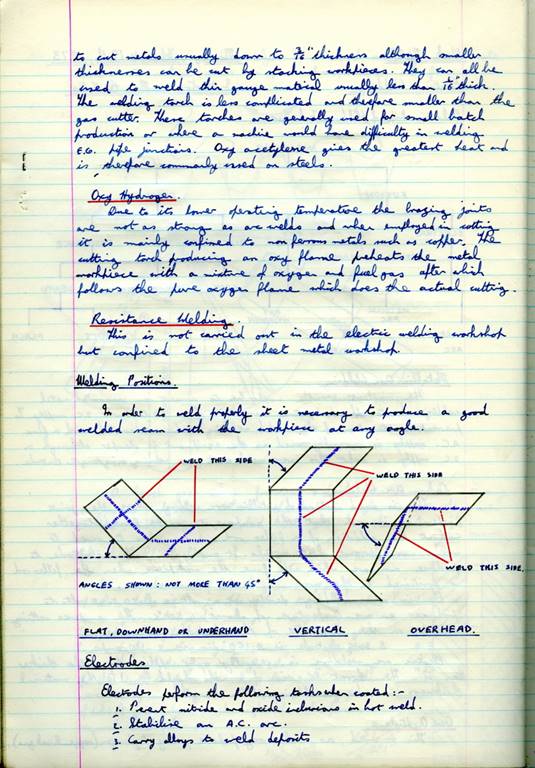 to cut metals usually down to 3/16" thickness although smaller
thicknesses can be cut by stacking workpieces. They can all be
used to weld thin gauge material usually less than 1/16" thick.
The welding torch is less complicated and therefore smaller than the
gas cutter. These torches are generally used for small batch
production or where a machine would have difficulty in welding
E.G. pipe junctions. Oxy acetylene gives the greatest heat and
is therefore commonly used on steels.
Oxy Hydrogen.
Due to its lower operating temperature the brazing joints
are not as strong as arc welds and when employed in cutting
it is mainly confined to non ferrous metals such as copper. The
cutting torch producing an oxy flame preheats the metal
workpiece with a mixture of oxygen and fuel gas after which
follows the pure oxygen flame which does the actual cutting.
Resistance Welding.
This is not carried out in the electric welding workshop
but confined to the sheet metal workshop.
Welding Positions.
In order to weld properly it is necessary to produce a good
welded seam with the workpiece at any angle.
WELD THIS SIDE
WELD THIS SIDE
WELD THIS SIDE.
ANGLES SHOWN: NOT MORE THAN 45°
FLAT, DOWNHAND OR UNDERHAND VERTICAL OVERHEAD.
Electrodes
Electrodes perform the following tasks when coated:-
1. Prevent nitride and oxide inclusions in hot weld.
2. Stabilise an A.C. arc.
3. Carry alloys to weld deposits